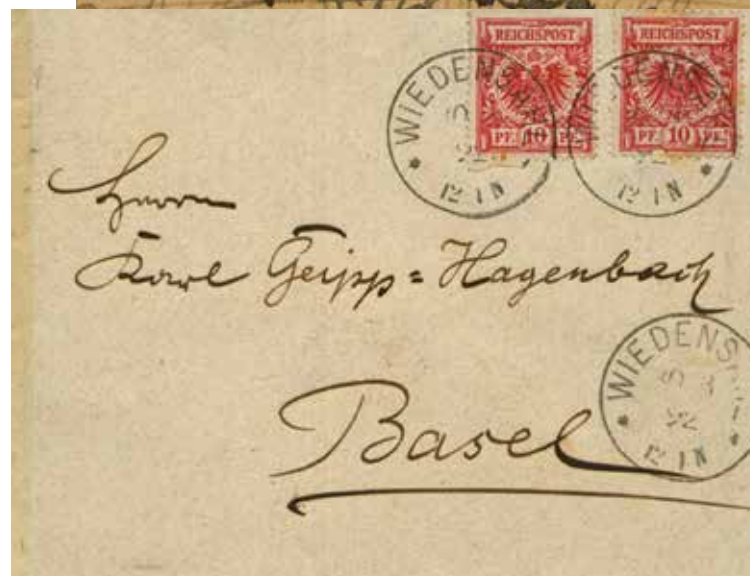 REICHSPOST REICHSPOST
PF. 10 PF. PF. 10 PF.
12 1 N 12 1 N
Herrn
Karl Geipp=Hagenbach
WIEDENS
92
12 1 N
Basel